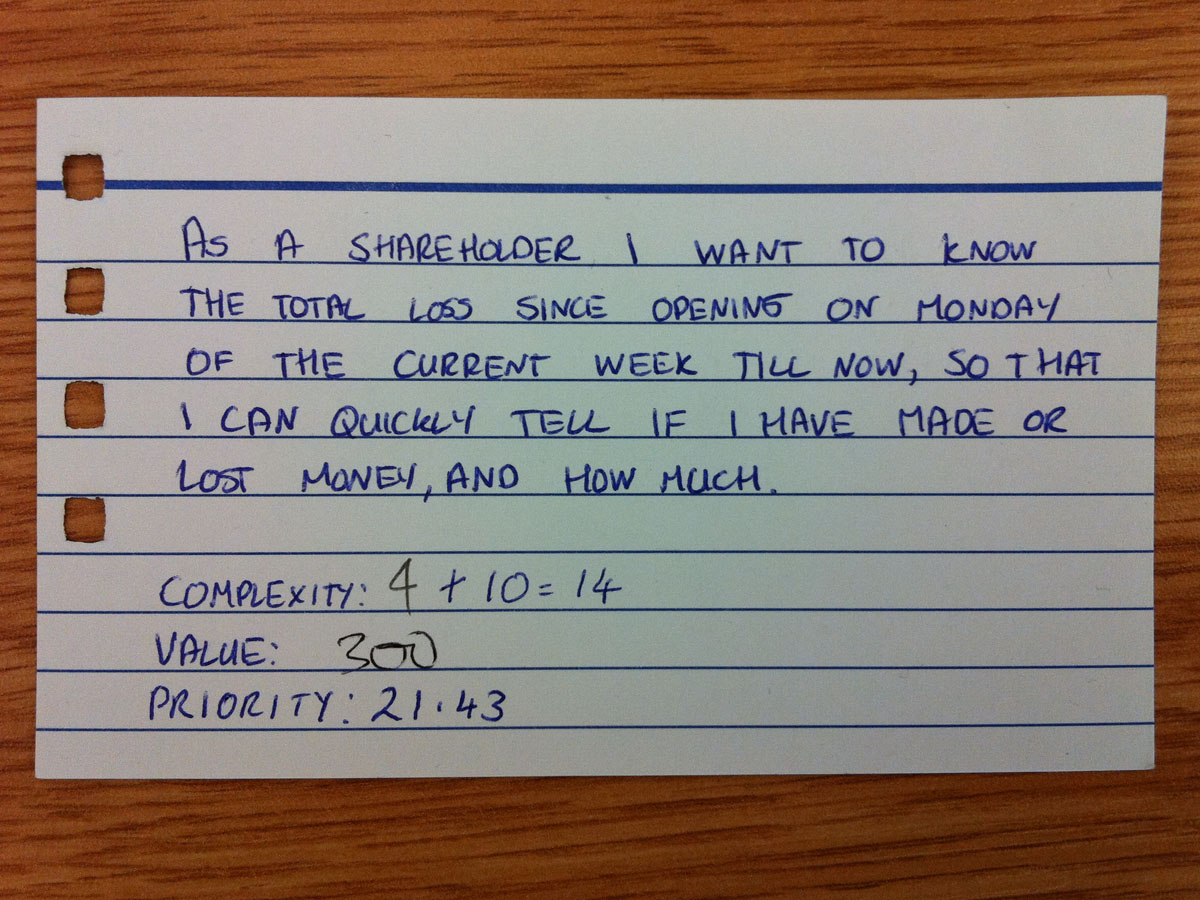 AS A SHAREHOLDER I WANT TO KNOW
THE TOTAL LOSS SINCE OPENING ON MONDAY
OF THE CURRENT WEEK TILL NOW, SO THAT
I CAN QUICKLY TELL IF I HAVE MADE OR
LOST MONEY, AND HOW MUCH.
COMPLEXITY: 4 + 10 = 14
VALUE: 300
PRIORITY: 21.43